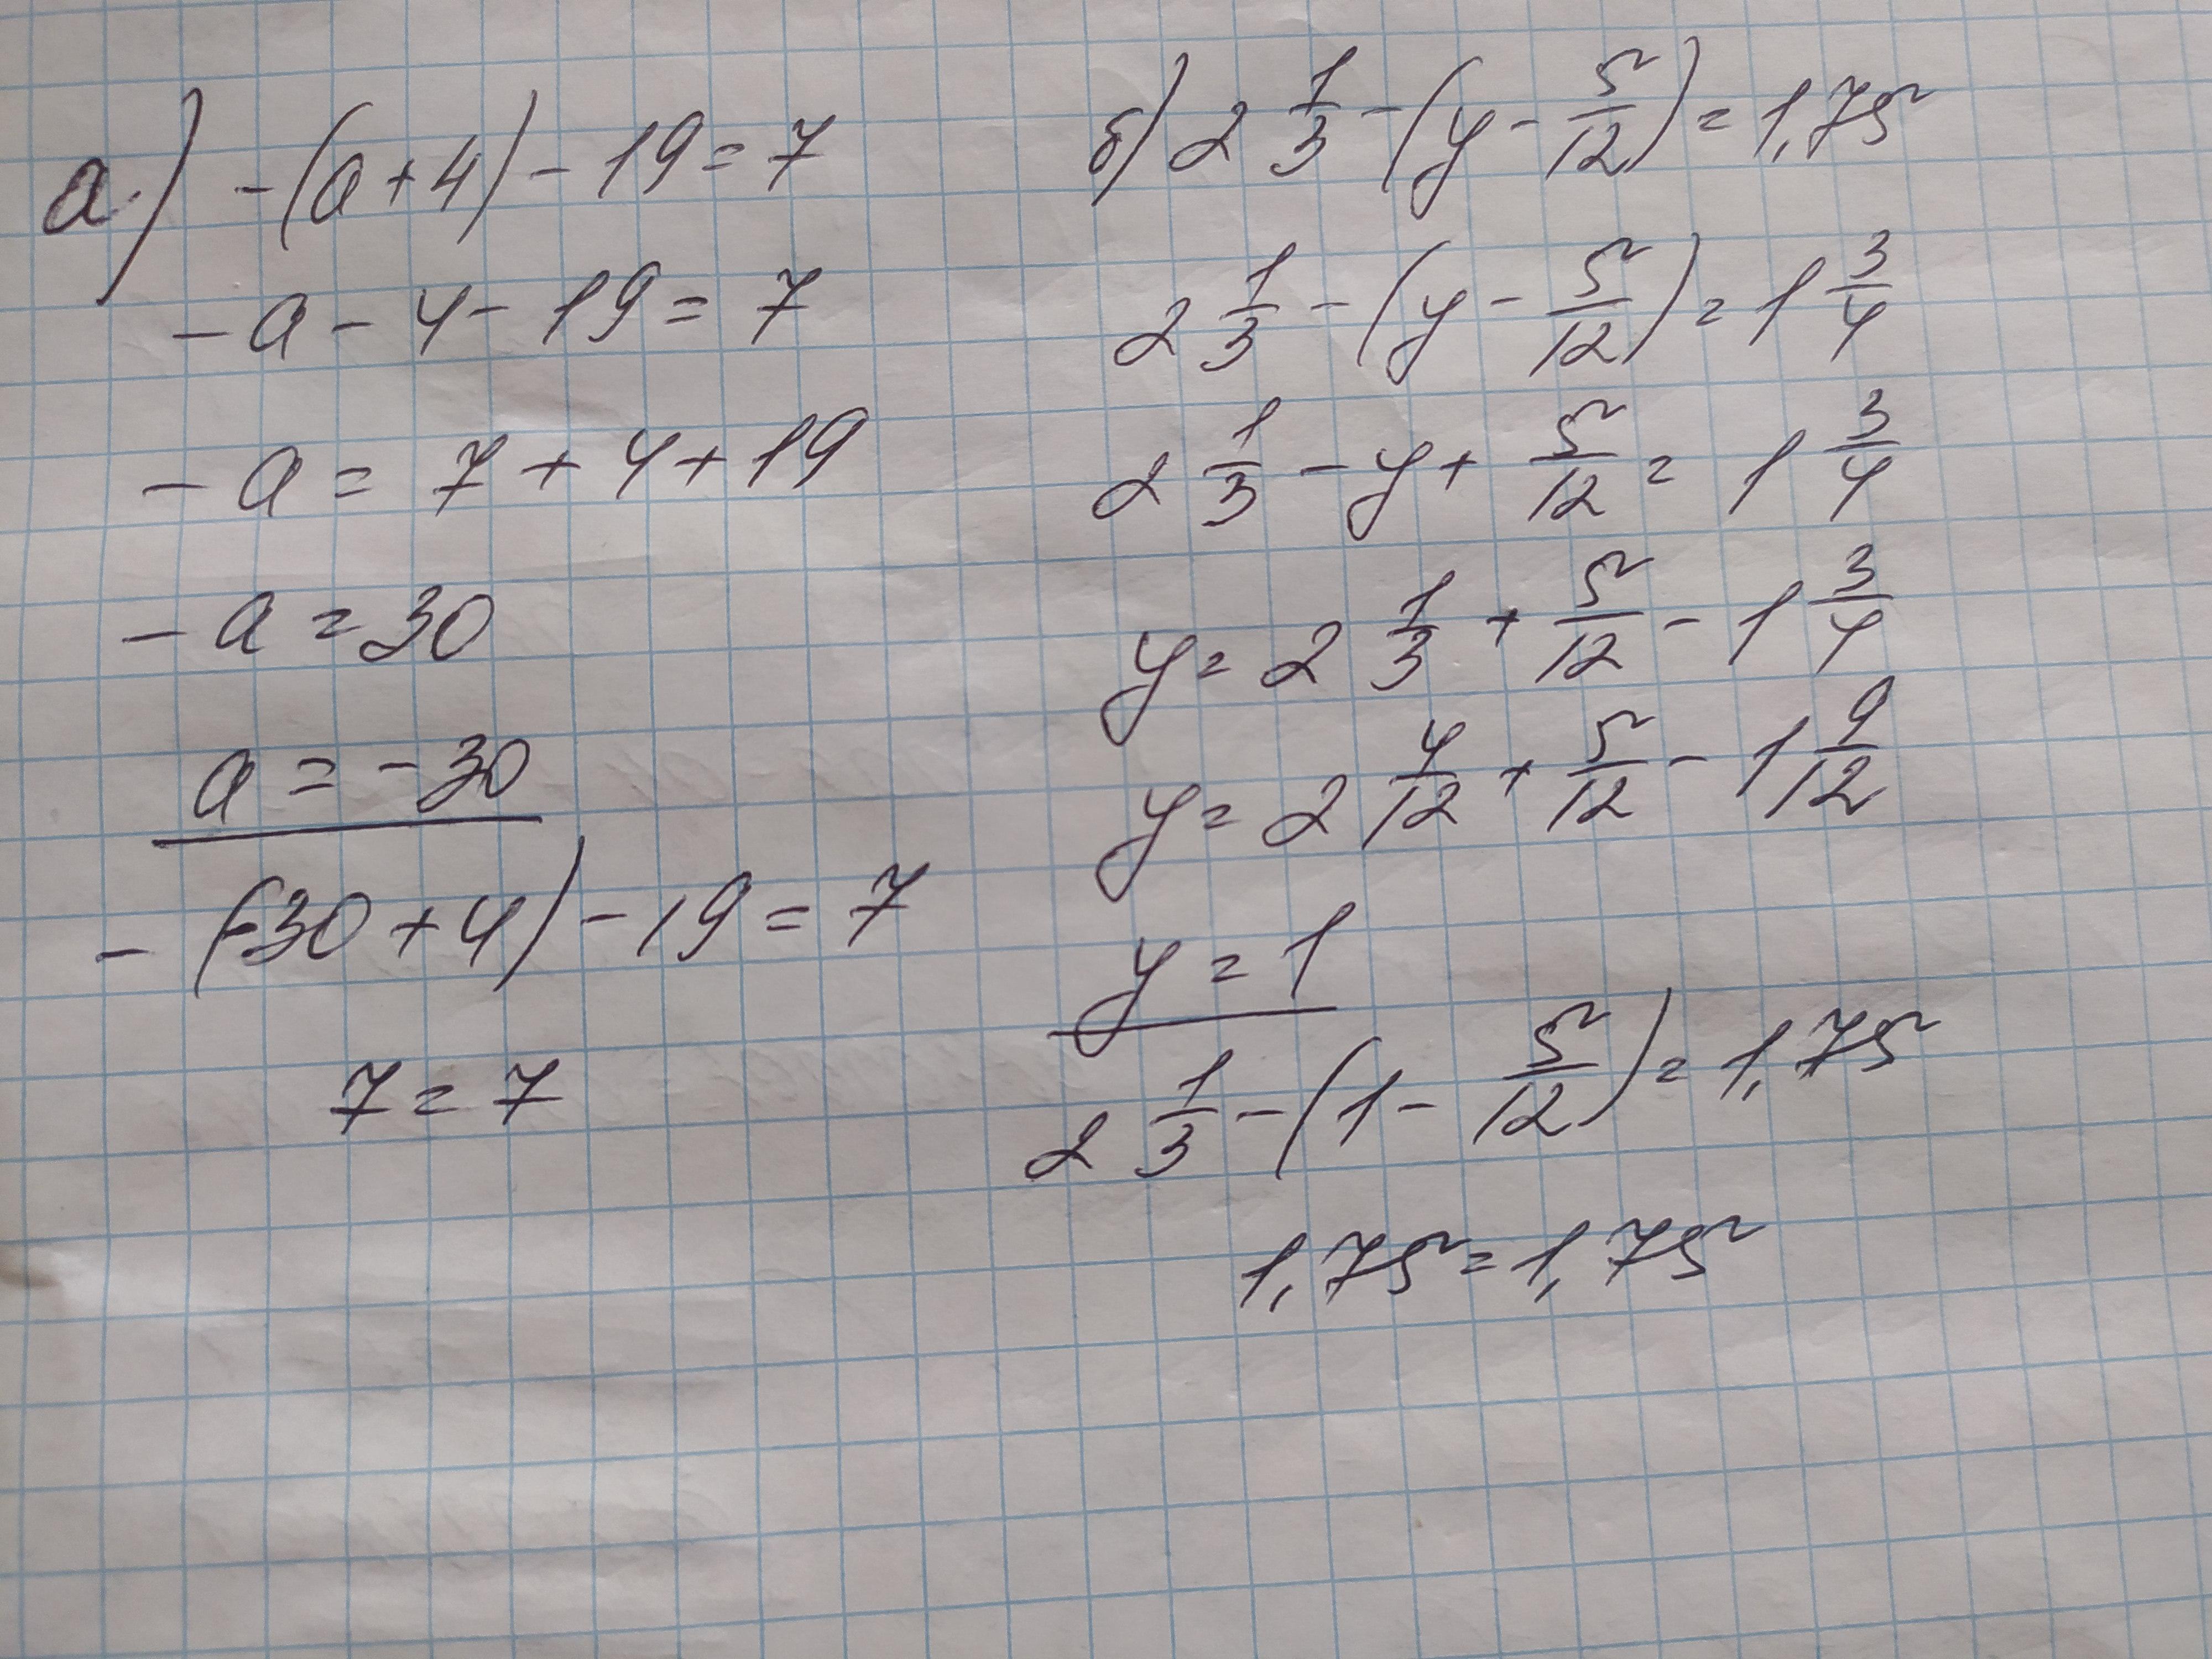 а) -(a+4)-19=7
-a-4-19=7
-a=7+4+19
-a=30
a=-30
-(-30+4)-19=7
7=7
б) 2 1/3-(y-5/12)=1,75
2 1/3-(y-5/12)=1 3/4
2 1/3-y+5/12=1 3/4
y=2 1/3+5/12-1 3/4
y=2 4/12+5/12-1 9/12
y=1
2 1/3-(1-5/12)=1,75
1,75=1,75